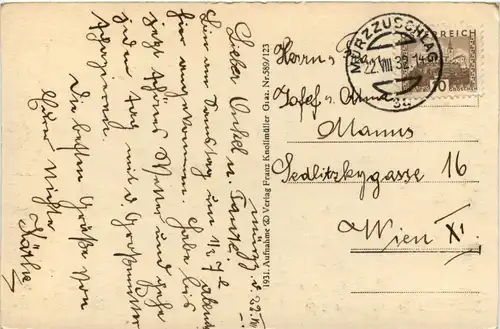 Lieber Onkel u. Tante!
Bin am Samstag um ½ 7h abends
hier angekommen. Habe bis
jetzt schönes Wetter und gehe
jeden Tag mit d. Großmutter
spazieren.
Die besten Grüße von
Eurer Nichte
Käthe
1931. Aufnahme u. Verlag Franz Knollmüller Graz. Nr: 589/123
MÜRZZUSCHLAG
22.VIII.32.14
ÖSTERREICH
GROSCHEN
Herrn u. Frau
Josef u. Anna
Manns
Sedlitzkygasse 16
Wien XI.